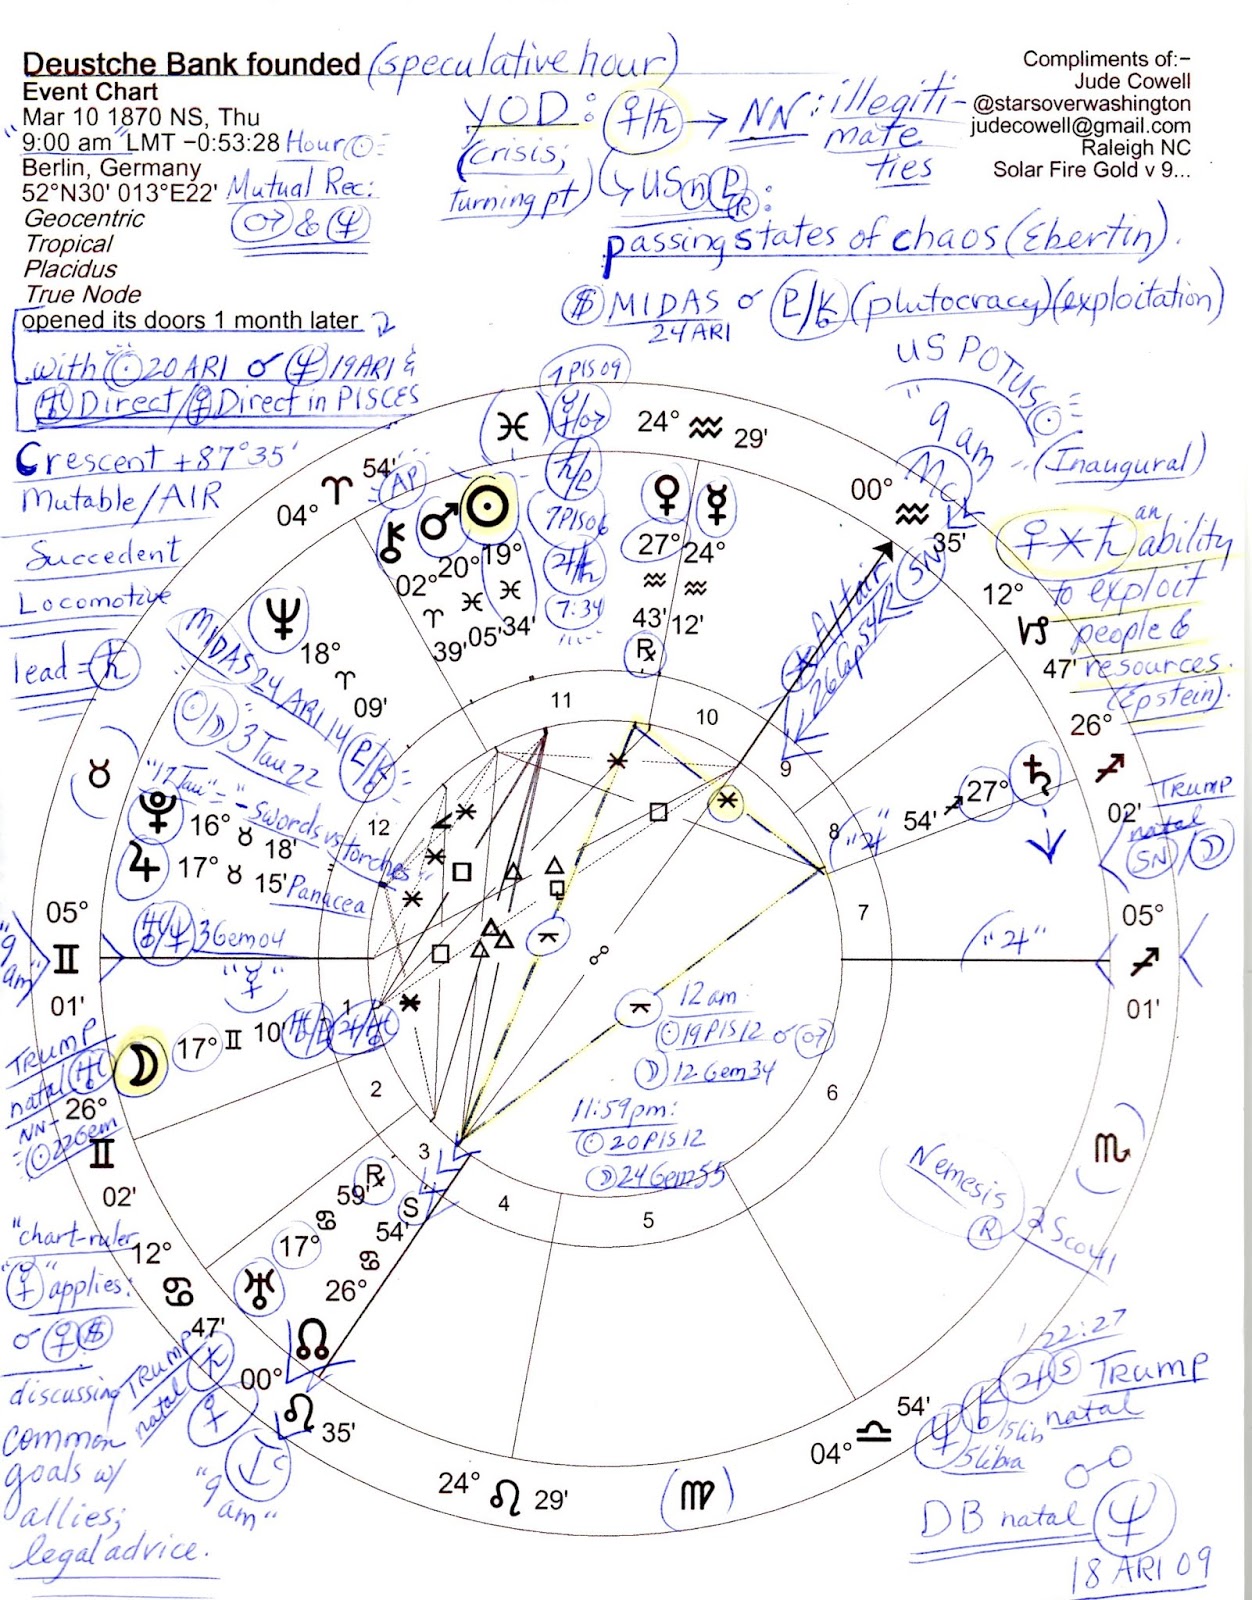 Deustche Bank founded (speculative hour)
Event Chart
Mar 10 1870 NS, Thu
"9:00 am" LMT −0:53:28 Hour ☉ =
Berlin, Germany
52°N30' 013°E22' Mutual Rec:
♂ & ♆
Geocentric
Tropical
Placidus
True Node
opened its doors 1 month later
with ☉ 20 ARI ☌ ♆ 19 ARI &
♅ Direct/☿ Direct in PISCES
Crescent +87°35'
Mutable/AIR
Succedent
Locomotive
lead = ♄
YOD: ♀/♄ → NN: illegiti-
mate
ties
(crisis;
turning pt)
↳ US n ♇ ℞:
passing states of chaos (Ebertin).
$ MIDAS ☌ ♇/⚷ (plutocracy) (exploitation)
24 ARI
Compliments of:−
Jude Cowell
@starsoverwashington
judecowell@gmail.com
Raleigh NC
Solar Fire Gold v 9...
US POTUS ☉ =
"9 am" (Inaugural)
Mc
♀ ⚹ ♄ an
ability
to exploit
people &
resources.
(Epstein).
7 PIS 09
♀/♂
♄/♇
7 PIS 06
♃/♄
7:34
♓
24° ♒ 29'
00° ♒ 35'
54'
04° ♈
AP
⚷ 02° ♈ 39'
♂ 20° ♓ 05'
☉ 19° ♓ 34'
♀ 27° ♒ 43' ℞
☿ 24° ♒ 12'
SN
Altair
26 Cap 54
12° ♑ 47'
26° ♐ 02'
♄ 27° ♐ 54'
Trump
natal
SN/☽
♆ 18° ♈ 09'
MIDAS 24 ARI 14 ♇/⚷ =
☉/☽ 3 Tau 22
♉
"17 Tau" = "-Swords vs torches"
♇ 16° ♉ 18'
♃ 17° ♉ 15' Panacea
♅/♆ 3 Gem 04
05° ♊ 01'
"9 am"
"☿"
☽ 17° ♊ 10'
♃/♅
TRUMP
natal ♅
NN-
☉ 22 Gem
26° ♊ 02'
"♃"
05° ♐ 01'
"♃"
12 am:
☉ 19 PIS 12 ☌ ♂
☽ 12 Gem 34
11:59 pm:
☉ 20 PIS 12
☽ 24 Gem 55
10
11
12
1
2
3
4
5
6
7
8
9
♏
Nemesis
℞
2 Sco 41
"chart-ruler
☿" applies:
☌ ♀ $
discussing
common
goals w/
allies;
legal advice.
12° ♋ 47'
♅ 17° ♋ 59' ℞
☊ 26° ♋ 54' S
TRUMP
natal ♄
♀
00° ♌ 35'
"9 am"
Ic
24° ♌ 29'
(♍)
04° ♎ 54'
22:27
♃ S Trump
natal
⚷ 15 Lib
♆ 5 Libra
☍
DB natal ♆
18 ARI 09